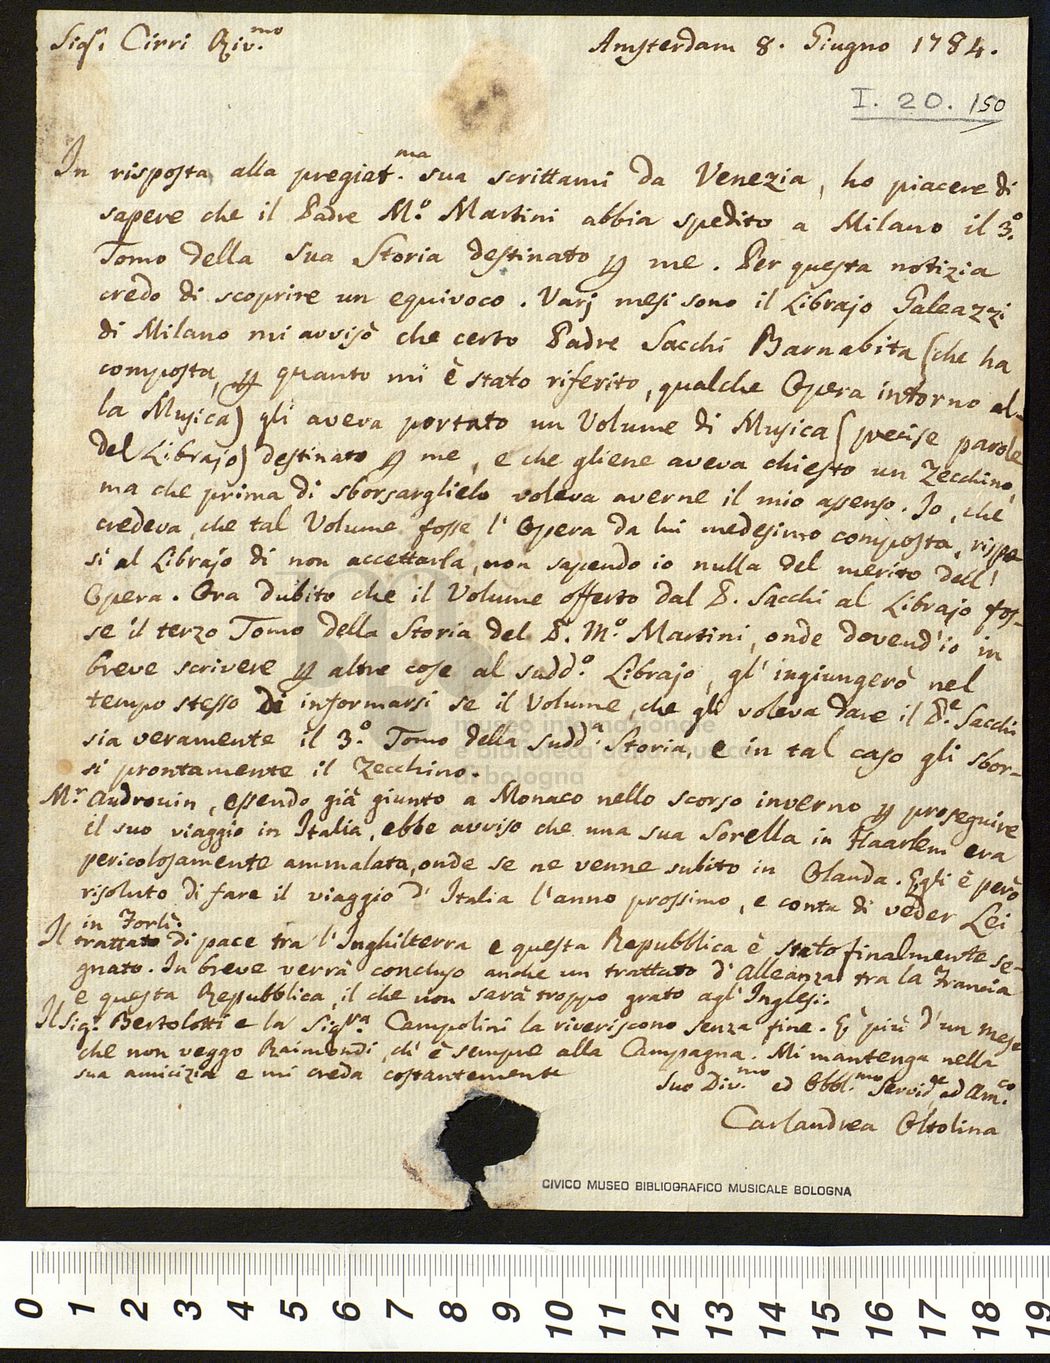 Sigr. Cirri Riv.mo
Amsterdam 8. Giugno 1784.
I. 20. 150
In risposta alla pregiat.ma sua scrittami da Venezia, ho piacere di
sapere che il Padre M.o Martini abbia spedito a Milano il 3.o
Tomo della sua Storia destinato ꝑ me. Per questa notizia
credo di scoprire un equivoco. Varj mesi sono il Librajo Galeazzi
di Milano mi avvisò che certo Padre Sacchi Barnabita (che ha
composta, ꝑ quanto mi è stato riferito, qualche Opera intorno al-
la Musica) gli aveva portato un Volume di Musica (precise parole
del Librajo) destinato ꝑ me, e che gliene aveva chiesto un Zecchino,
ma che prima di sborsarglielo voleva averne il mio assenso. Io, che
credeva, che tal Volume fosse l'Opera da lui medesimo composta, rispo-
si al Librajo di non accettarla, non sapendo io nulla del merito dell'
Opera. Ora dubito che il Volume offerto dal P. Sacchi al Librajo fos-
se il terzo Tomo della Storia del P. M.o Martini, onde dovend'io in
breve scrivere ꝑ altre cose al sudd.o Librajo, gl'ingiungerò nel
tempo stesso di informarsi se il Volume, che gli voleva dare il P.e Sacchi
sia veramente il 3.o Tomo della sudd.a Storia, e in tal caso gli sbor-
si prontamente il Zecchino.
Mr. Audrouin, essendo già giunto a Monaco nello scorso inverno ꝑ proseguire
il suo viaggio in Italia, ebbe avviso che una sua Sorella in Haarlem era
pericolosamente ammalata, onde se ne venne subito in Olanda. Egli è però
risoluto di fare il viaggio d'Italia l'anno prossimo, e conta di veder Lei
in Forlì.
Il trattato di pace tra l'Inghilterra e questa Repubblica è stato finalmente se-
gnato. In breve verrà concluso anche un trattato d'Alleanza tra la Francia
e questa Repubblica, il che non sarà troppo grato agl'Inglesi.
Il Sigr. Bertolotti e la Sigra. Campolini la riveriscono senza fine. È più d'un mese
che non veggo Raimondi, ch'è sempre alla Campagna. Mi mantenga nella
sua amicizia e mi creda costantemente
Suo Div.mo ed Obbl.mo Servid.e ed Am.co
Carlandrea Oltolina
museo internazionale
e biblioteca della musica
di bologna
CIVICO MUSEO BIBLIOGRAFICO MUSICALE BOLOGNA
0 1 2 3 4 5 6 7 8 9 10 11 12 13 14 15 16 17 18 19